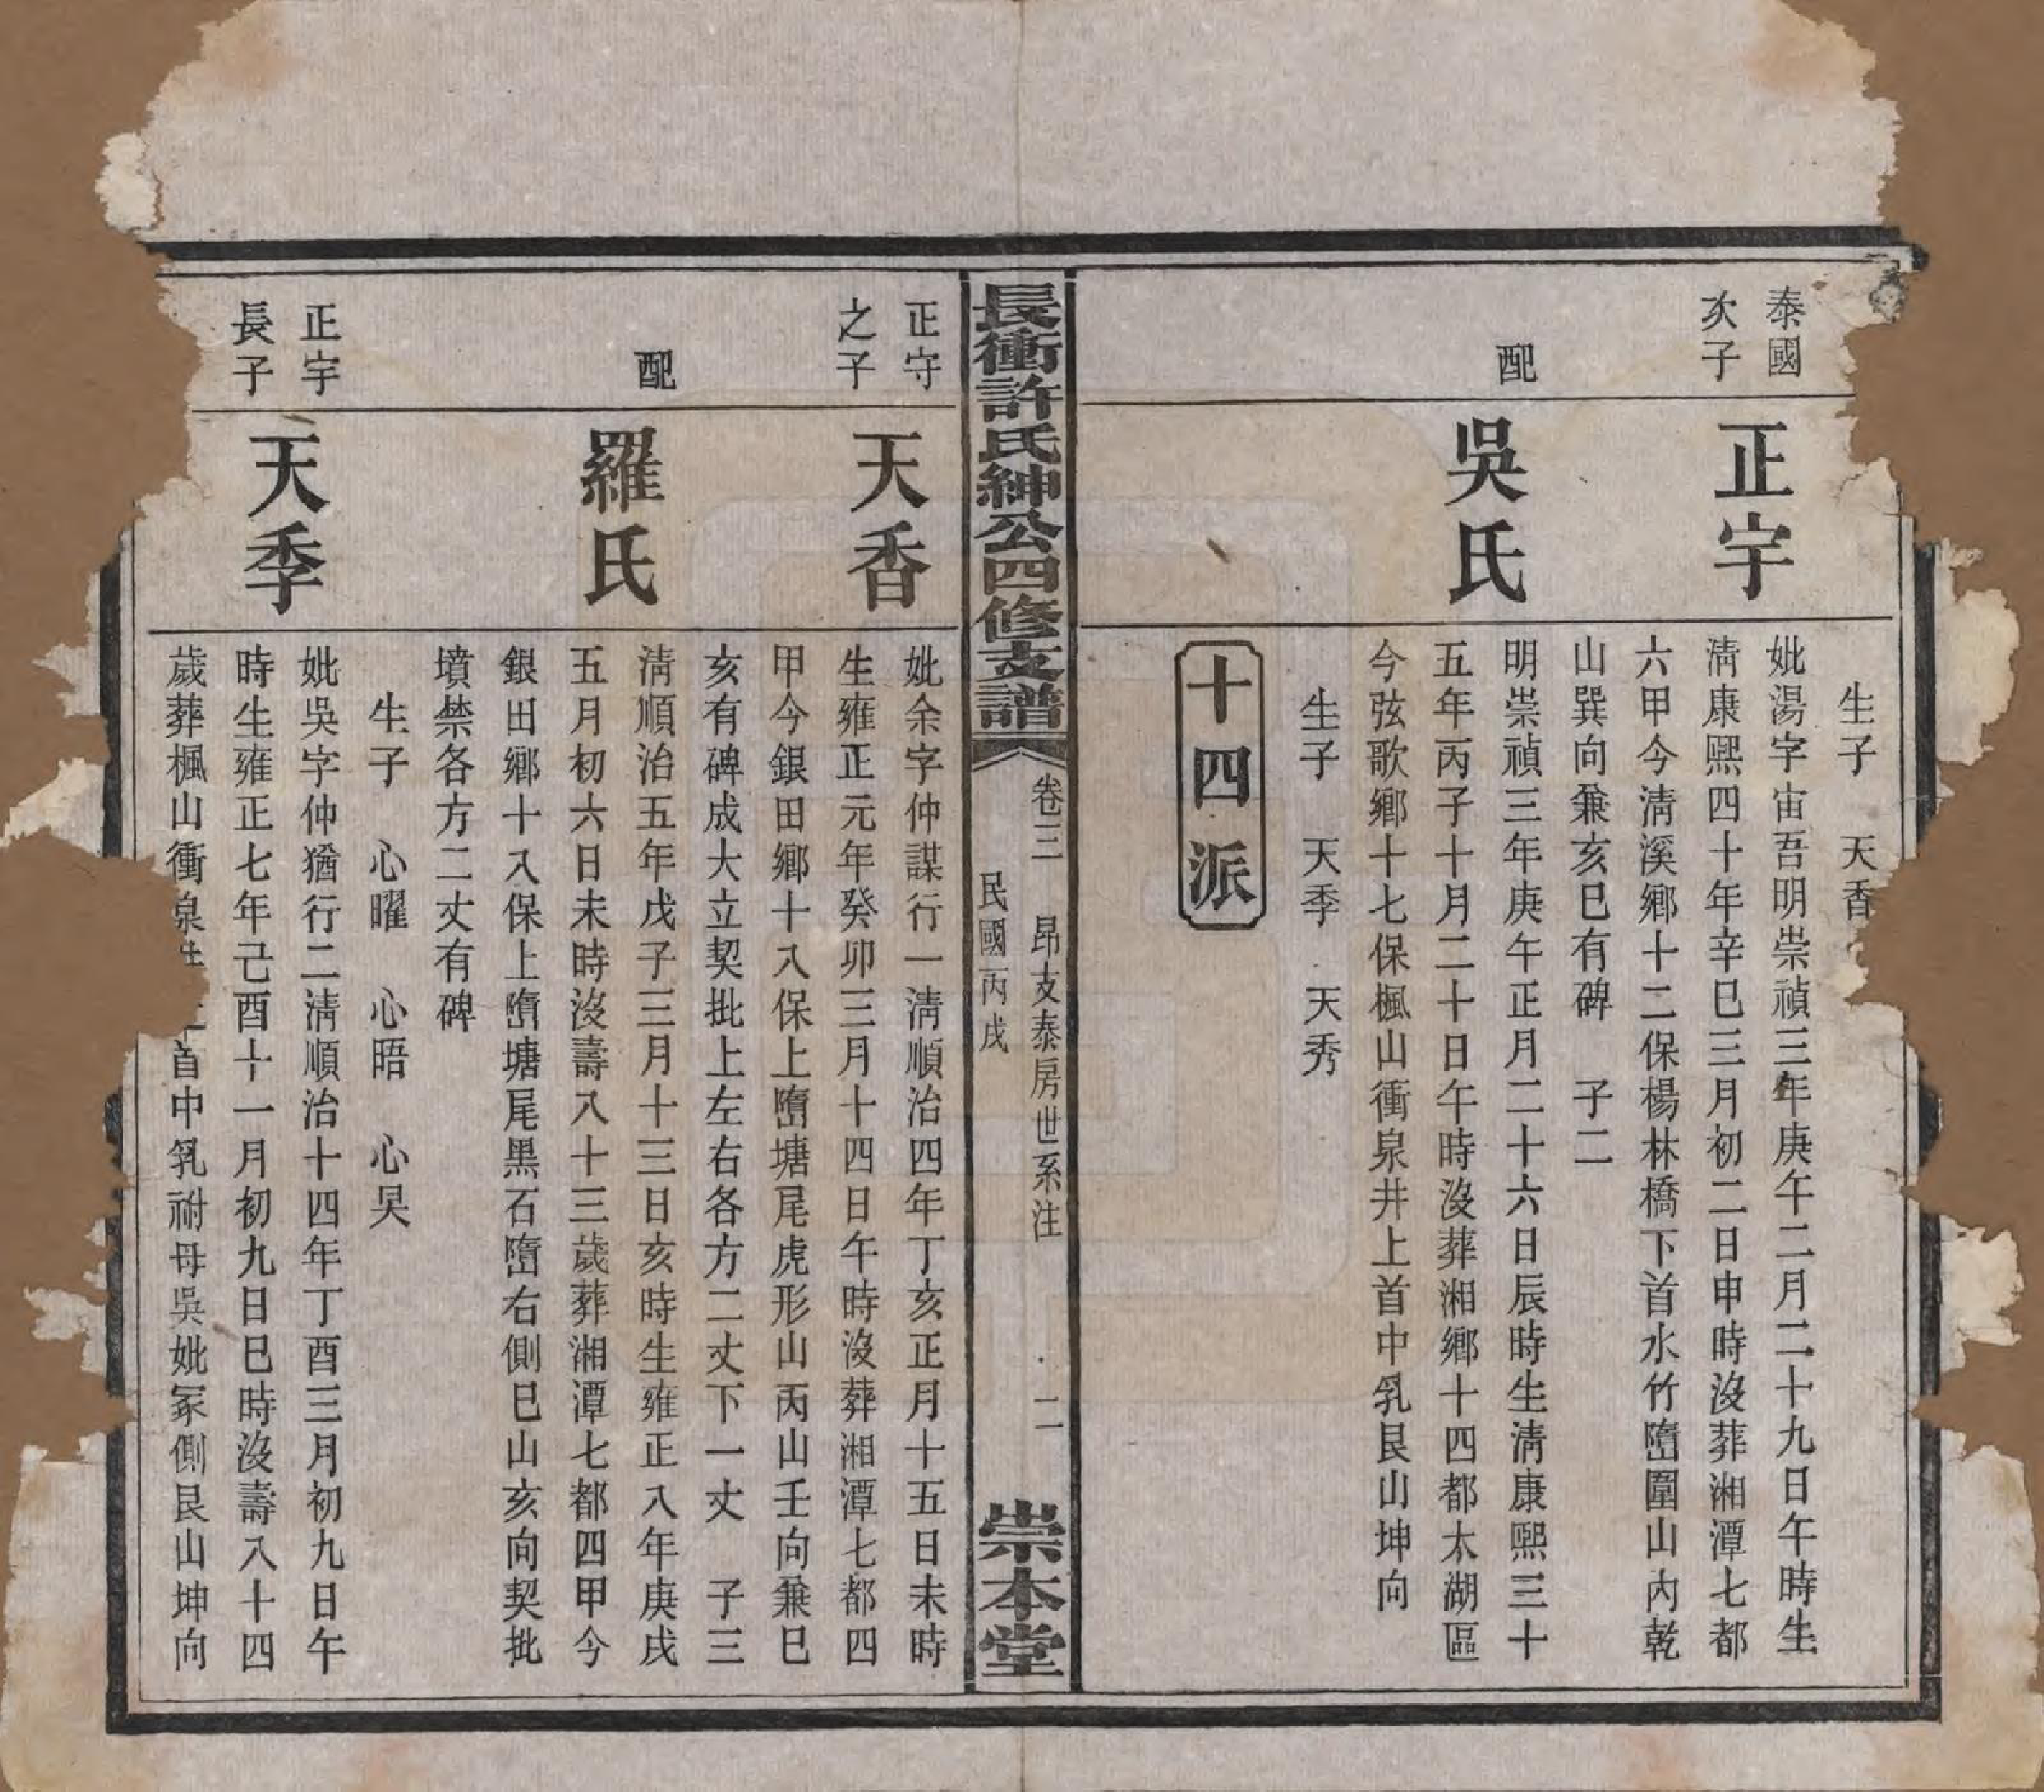 生子　天香
泰國
次子
正宇
妣湯字宙吾明崇禎三年庚午二月二十九日午時生
淸康熙四十年辛巳三月初二日申時沒葬湘潭七都
六甲今淸溪鄉十二保楊林橋下首水竹墮圍山內乾
山巽向兼亥巳有碑　子二
配
吳氏
明崇禎三年庚午正月二十六日辰時生淸康熙三十
五年丙子十月二十日午時沒葬湘鄉十四都太湖區
今弦歌鄉十七保楓山衝泉井上首中乳艮山坤向
生子　天季　天秀
十四派
長衝許氏紳公四修支譜
卷三　昂支泰房世系注　二
民國丙戌
崇本堂
正守
之子
天香
妣余字仲謀行一淸順治四年丁亥正月十五日未時
生雍正元年癸卯三月十四日午時沒葬湘潭七都四
甲今銀田鄉十八保上墮塘尾虎形山丙山壬向兼巳
亥有碑成大立契批上左右各方二丈下一丈　子三
配
羅氏
淸順治五年戊子三月十三日亥時生雍正八年庚戌
五月初六日未時沒壽八十三歲葬湘潭七都四甲今
銀田鄉十八保上墮塘尾黑石墮右側巳山亥向契批
墳禁各方二丈有碑
生子　心曜　心晤　心昊
正宇
長子
天季
妣吳字仲猶行二淸順治十四年丁酉三月初九日午
時生雍正七年己酉十一月初九日巳時沒壽八十四
歲葬楓山衝泉首中乳祔母吳妣冢側艮山坤向